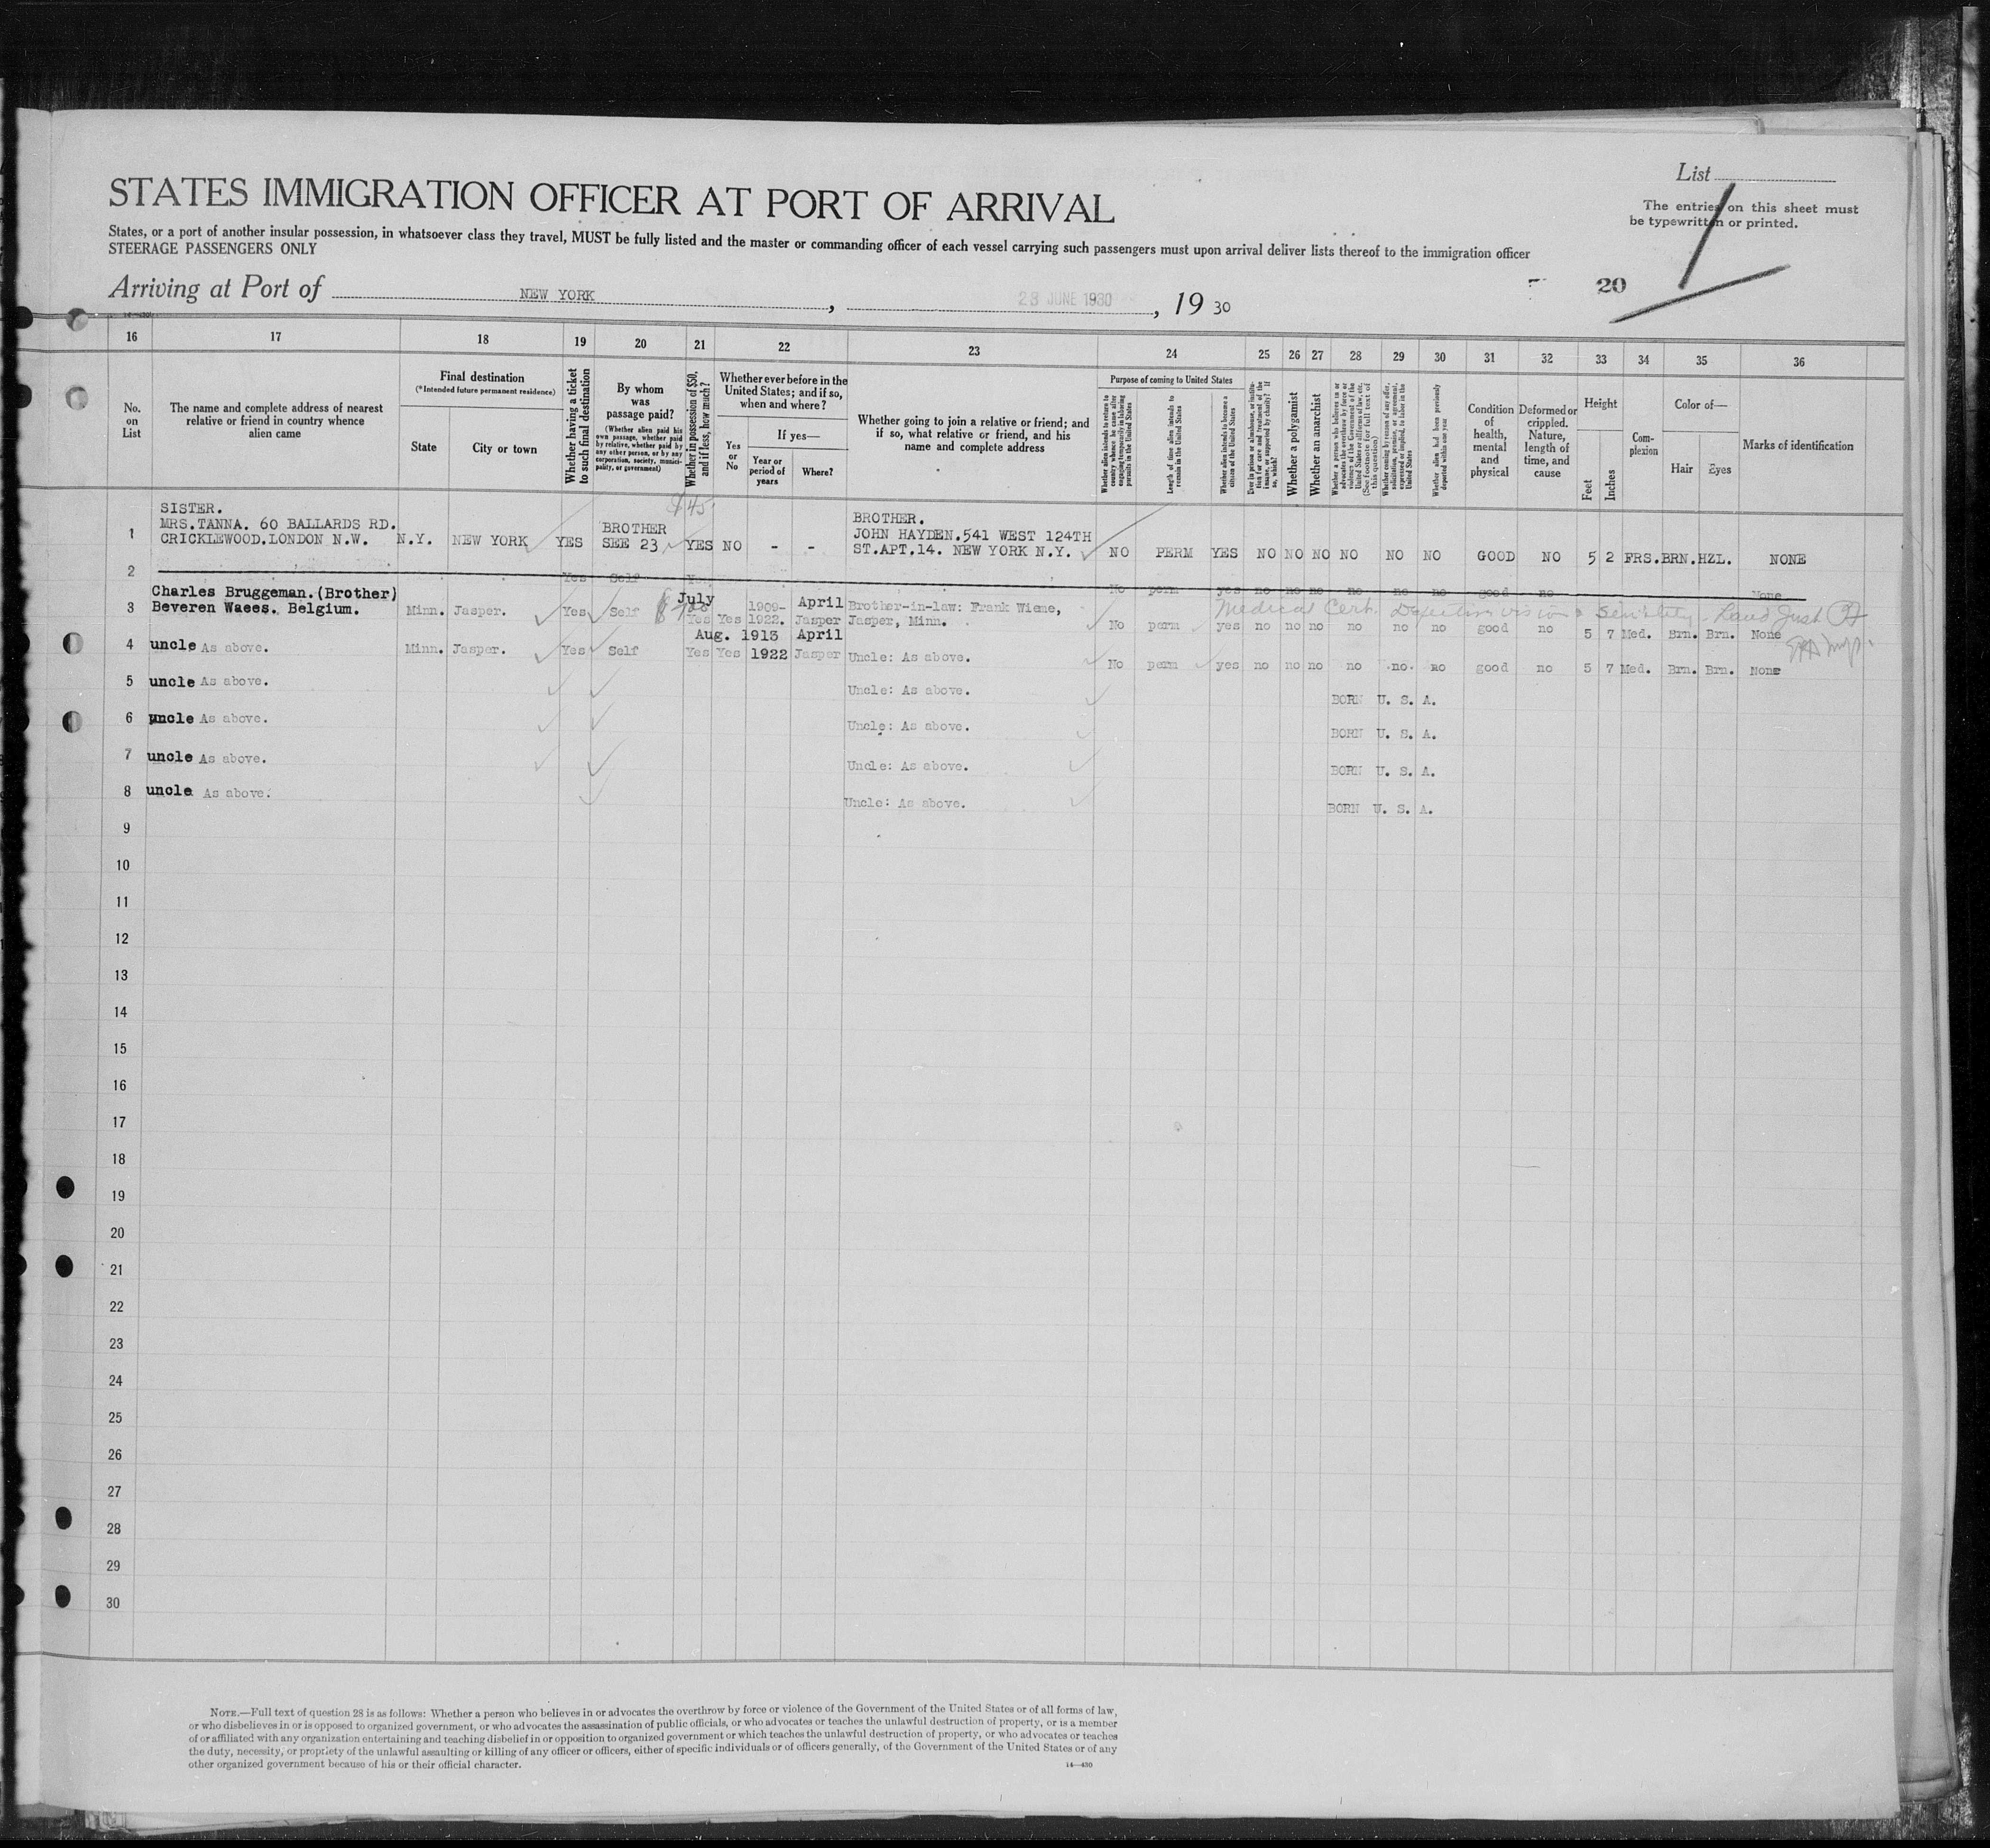 List
STATES IMMIGRATION OFFICER AT PORT OF ARRIVAL
The entries on this sheet must
be typewritten or printed.
States, or a port of another insular possession, in whatsoever class they travel, MUST be fully listed and the master or commanding officer of each vessel carrying such passengers must upon arrival deliver lists thereof to the immigration officer
STEERAGE PASSENGERS ONLY
Arriving at Port of NEW YORK, 23 JUNE 1930, 19 30
20
16 17 18 19 20 21 22 23 24 25 26 27 28 29 30 31 32 33 34 35 36
No. on List
The name and complete address of nearest
relative or friend in country whence
alien came
Final destination
(*Intended future permanent residence)
State
City or town
Whether having a ticket
to such final destination
By whom
was
passage paid?
(Whether alien paid his
own passage, whether paid
by relative, whether paid by
any other person, or by any
corporation, society, munici-
pality, or government)
Whether in possession of $50,
and if less, how much?
Whether ever before in the
United States; and if so,
when and where?
Yes
or
No
If yes—
Year or
period of
years
Where?
Whether going to join a relative or friend; and
if so, what relative or friend, and his
name and complete address
Purpose of coming to United States
Whether alien intends to return to
country whence he came after
engaging temporarily in laboring
pursuits in the United States
Length of time alien intends to
remain in the United States
Whether alien intends to become a
citizen of the United States
Ever in prison or almshouse, or institu-
tion for care and treatment of the
insane, or supported by charity? If
so, which?
Whether a polygamist
Whether an anarchist
Whether a person who believes in or
advocates the overthrow by force or
violence of the Government of the
United States or all forms of law, etc.
(See footnote for full text of
this question)
Whether coming by reason of any offer,
solicitation, promise, or agreement,
expressed or implied, to labor in the
United States
Whether alien had been previously
deported within one year
Condition
of
health,
mental
and
physical
Deformed or
crippled.
Nature,
length of
time, and
cause
Height
Feet
Inches
Com-
plexion
Color of—
Hair
Eyes
Marks of identification
$45
SISTER. BROTHER.
1 MRS.TANNA. 60 BALLARDS RD. BROTHER JOHN HAYDEN.541 WEST 124TH
CRICKLEWOOD.LONDON N.W. N.Y. NEW YORK YES SEE 23 YES NO - - ST.APT,14. NEW YORK N.Y. NO PERM YES NO NO NO NO NO NO GOOD NO 5 2 FRS. BRN. HZL. NONE
2 Yes Self Yes No perm yes no no no no no no good no None
Charles Bruggeman.(Brother) July
3 Beveren Waees. Belgium. Minn. Jasper. Yes Self Yes Yes 1909-1922. April Jasper Brother-in-law: Frank Wieme, Jasper, Minn. No perm yes no no no no no no good no 5 7 Med. Brn. Brn. None
Medical Cert.
Aug. 1913 April
4 uncle As above. Minn. Jasper. Yes Self Yes Yes 1922 Jasper Uncle: As above. No perm yes no no no no no no good no 5 7 Med. Brn. Brn. None
5 uncle As above. Uncle: As above. BORN U. S. A.
6 uncle As above. Uncle: As above. BORN U. S. A.
7 uncle As above. Uncle: As above. BORN U. S. A.
8 uncle As above. Uncle: As above. BORN U. S. A.
9
10
11
12
13
14
15
16
17
18
19
20
21
22
23
24
25
26
27
28
29
30
NOTE.—Full text of question 28 is as follows: Whether a person who believes in or advocates the overthrow by force or violence of the Government of the United States or of all forms of law,
or who disbelieves in or is opposed to organized government, or who advocates the assassination of public officials, or who advocates or teaches the unlawful destruction of property, or is a member
of or affiliated with any organization entertaining and teaching disbelief in or opposition to organized government or which teaches the unlawful destruction of property, or who advocates or teaches
the duty, necessity, or propriety of the unlawful assaulting or killing of any officer or officers, either of specific individuals or of officers generally, of the Government of the United States or of any
other organized government because of his or their official character.
14—430